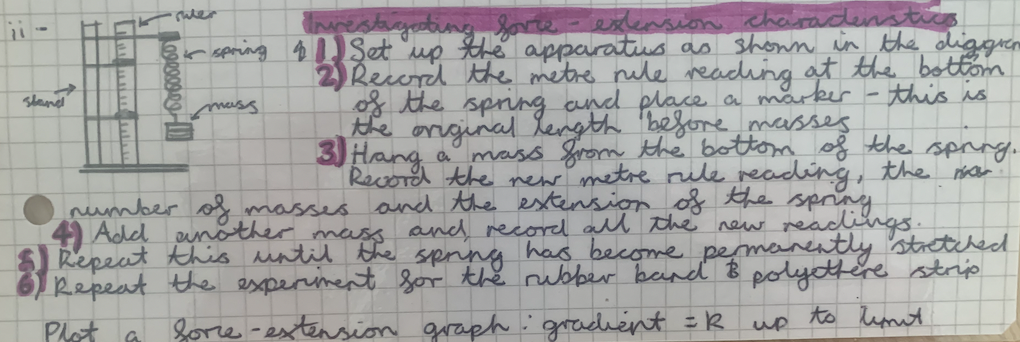 ii - ruler
Investigating force - extension characteristics
spring
1) Set up the apparatus as shown in the diagram
2) Record the metre rule reading at the bottom
stand
of the spring and place a marker - this is
mass
the original length before masses
3) Hang a mass from the bottom of the spring.
Record the new metre rule reading, the
number of masses and the extension of the spring
4) Add another mass and record all the new readings.
5) Repeat this until the spring has become permanently stretched
6) Repeat the experiment for the rubber band & polythere strip
Plot a force-extension graph : gradient = k up to limit